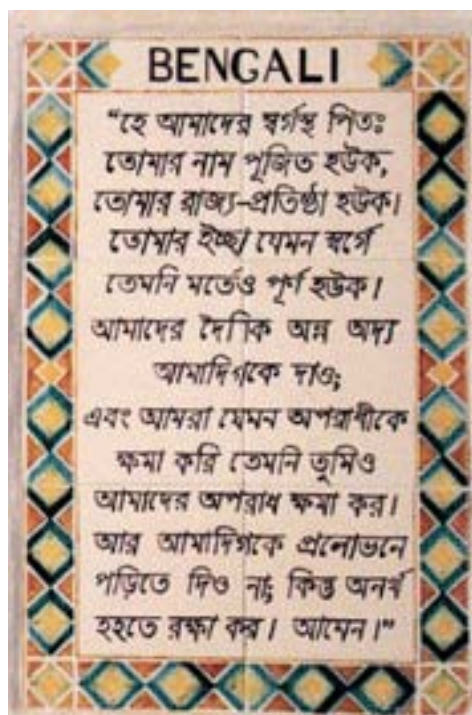 BENGALI
“হে আমাদের স্বর্গস্থ পিতঃ
তোমার নাম পূজিত হউক,
তোমার রাজ্য-প্রতিষ্ঠা হউক।
তোমার ইচ্ছা যেমন স্বর্গে
তেমনি মর্তেও পূর্ণ হউক।
আমাদের দৈণিক অন্ন অদ্য
আমাদিগকে দাও;
এবং আমরা যেমন অপরাধীকে
ক্ষমা করি তেমনি তুমিও
আমাদের অপরাধ ক্ষমা কর।
আর আমাদিগকে প্রলোভনে
পড়িতে দিও না; কিন্তু অনর্থ
হহতে রক্ষা কর। আমেন।”